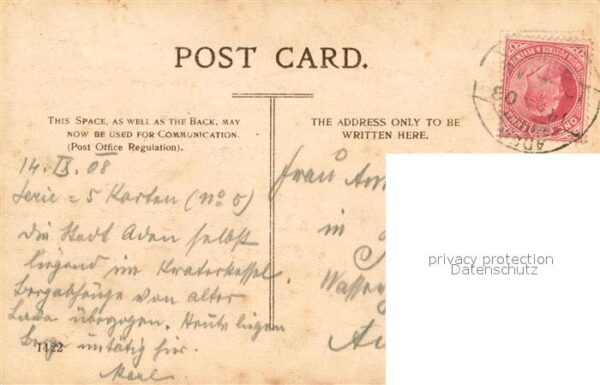 POST CARD.
THIS SPACE, AS WELL AS THE BACK, MAY
NOW BE USED FOR COMMUNICATION.
(Post Office Regulation).
THE ADDRESS ONLY TO BE
WRITTEN HERE.
INDIA POSTAGE & REVENUE
ONE
14. IX. 08
Serie = 5 Karten (No 5)
Die Stadt Aden selbst
liegend im Kraterkessel.
Bergabhänge von alter
Lava überzogen. Heute liegen
untätig hier.
1422
Frau
in
privacy protection
Datenschutz